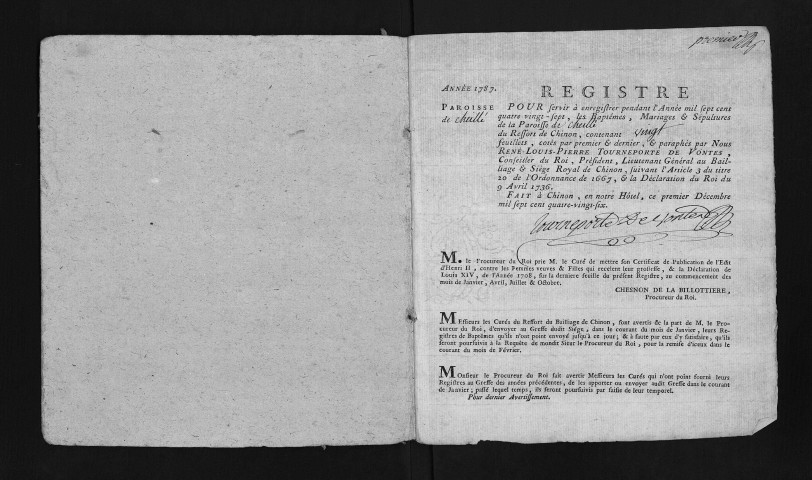 premier
ANNÉE 1787.
REGISTRE
PAROISSE
de cheillé
POUR servir à enregistrer pendant l'Année mil sept cent
quatre-vingt-sept, les Baptêmes, Mariages & Sépultures
de la Paroisse de cheillé
du Ressort de Chinon, contenant vingt
feuillets, cotés par premier & dernier, & paraphés par Nous
RENÉ-LOUIS-PIERRE TOURNEPORTE DE VONTES,
Conseiller du Roi, Président, Lieutenant Général au Bail-
liage & Siège Royal de Chinon, suivant l'Article 3 du titre
20 de l'Ordonnance de 1667, & la Déclaration du Roi du
9 Avril 1736.
FAIT à Chinon, en notre Hôtel, ce premier Décembre
mil sept cent quatre-vingt-six.
Tourneporte De Vontes
M. le Procureur du Roi prie M. le Curé de mettre son Certificat de Publication de l'Edit
d'Henri II, contre les Femmes veuves & Filles qui recelent leur grossesse, & la Déclaration de
Louis XIV, de l'Année 1708, sur la derniere feuille du présent Registre, au commencement des
mois de Janvier, Avril, Juillet & Octobre.
CHESNON DE LA BILLOTTIERE,
Procureur du Roi.
MEssieurs les Curés du Ressort du Bailliage de Chinon, sont avertis de la part de M. le Pro-
cureur du Roi, d'envoyer au Greffe dudit Siége, dans le courant du mois de Janvier, leurs Re-
gistres de Baptêmes qu'ils n'ont point envoyé jusqu'à ce jour; & à faute par eux d'y satisfaire, qu'ils
seront poursuivis à la Requête de mondit Sieur le Procureur du Roi, pour la remise d'iceux dans le
courant du mois de Février.
MOnsieur le Procureur du Roi fait avertir Messieurs les Curés qui n'ont point fourni leurs
Registres au Greffe des années précédentes, de les apporter ou envoyer audit Greffe dans le courant
de Janvier; passé lequel temps, ils seront poursuivis par saisie de leur temporel.
Pour dernier Avertissement.